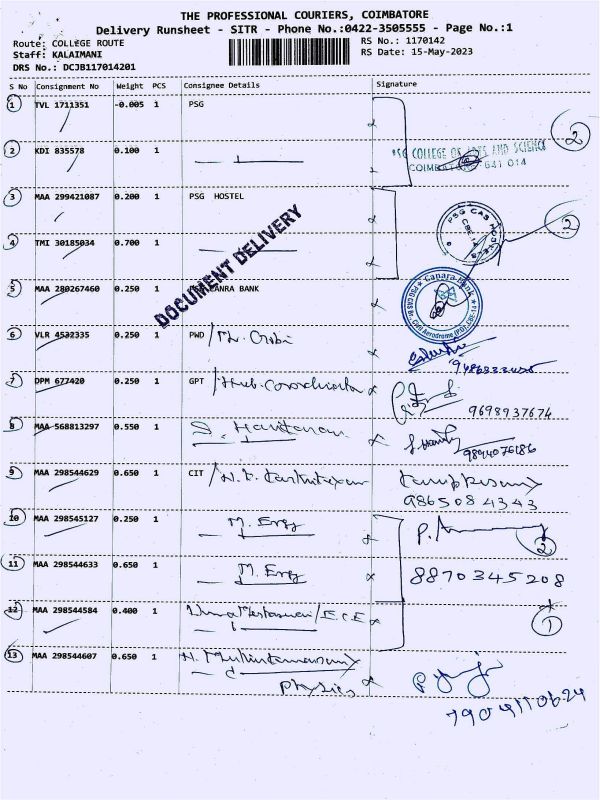 THE PROFESSIONAL COURIERS, COIMBATORE
Delivery Runsheet - SITR - Phone No.:0422-3505555 - Page No.:1
Route: COLLEGE ROUTE
RS No.: 1170142
Staff: KALAIMANI
RS Date: 15-May-2023
DRS No.: DCJB117014201
S No Consignment No Weight PCS Consignee Details Signature
1 TVL 1711351 -0.005 1 PSG
2
2 KDI 835578 0.100 1
PSG COLLEGE OF ARTS AND SCIENCE
COIMBATORE - 641 014
3 MAA 299421087 0.200 1 PSG HOSTEL
PSG CAS HOSTELS
CBE-14
2
4 TMI 30185034 0.700 1
DOCUMENT DELIVERY
5 MAA 280267460 0.250 1 PSG CANRA BANK
Canara Bank
PSG CAS Br., Civil Aerodrome (PO), CBE-14
6 VLR 4532335 0.250 1 PWD
7 DPM 677420 0.250 1 GPT / Hub. Coordinator
9698937674
8 MAA 568813297 0.550 1
9894076186
9 MAA 298544629 0.650 1 CIT
9865084343
10 MAA 298545127 0.250 1 M. Engg
2
11 MAA 298544633 0.650 1 M. Engg
8870345208
12 MAA 298544584 0.400 1 / E.C.E
1
13 MAA 298544607 0.650 1
Physics
7904110624